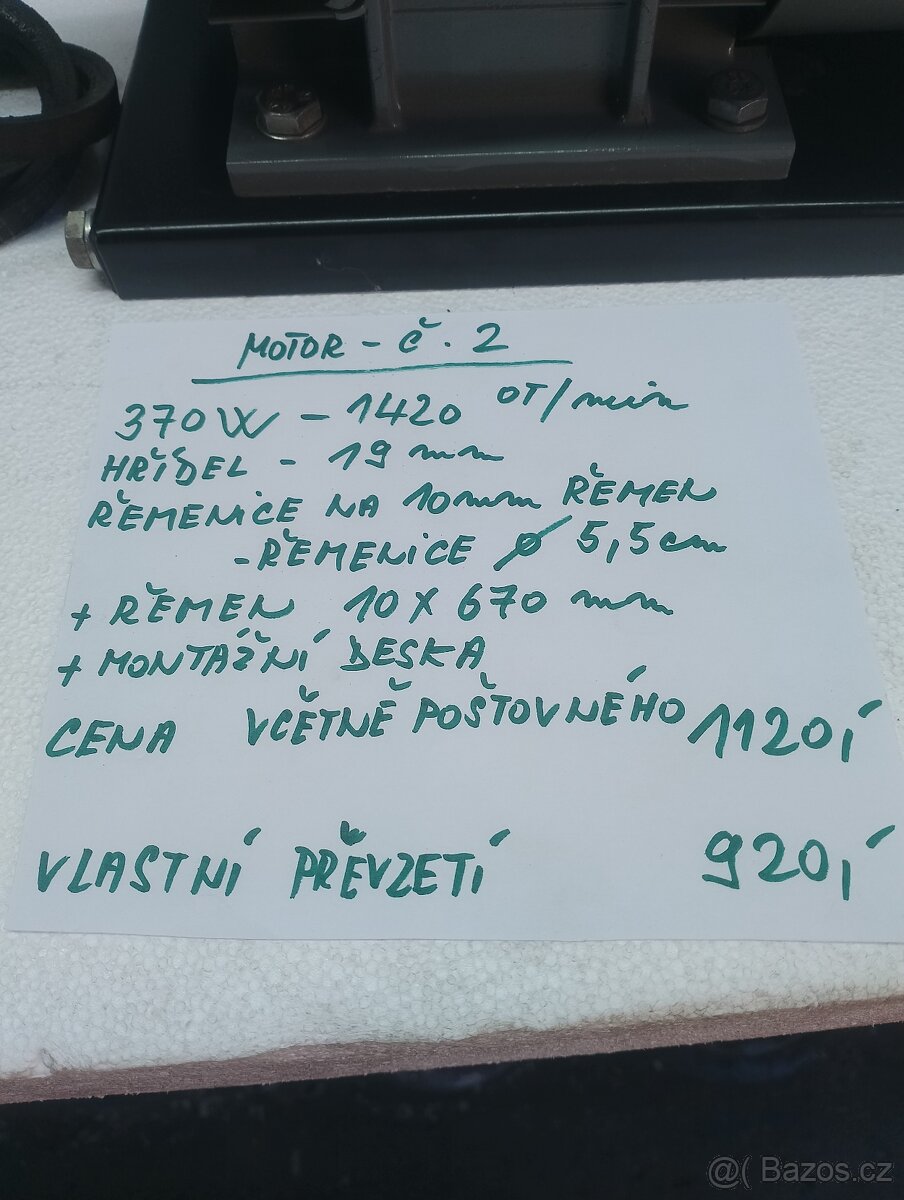 MOTOR - Č. 2
370W - 1420 OT/min
HŘÍDEL - 19 mm
ŘEMENICE NA 10mm ŘEMEN
-ŘEMENICE ø 5,5cm
+ ŘEMEN 10 X 670 mm
+ MONTÁŽNÍ DESKA
CENA VČETNĚ POŠTOVNÉHO 1120,-
VLASTNÍ PŘEVZETÍ 920,-
@( Bazos.cz